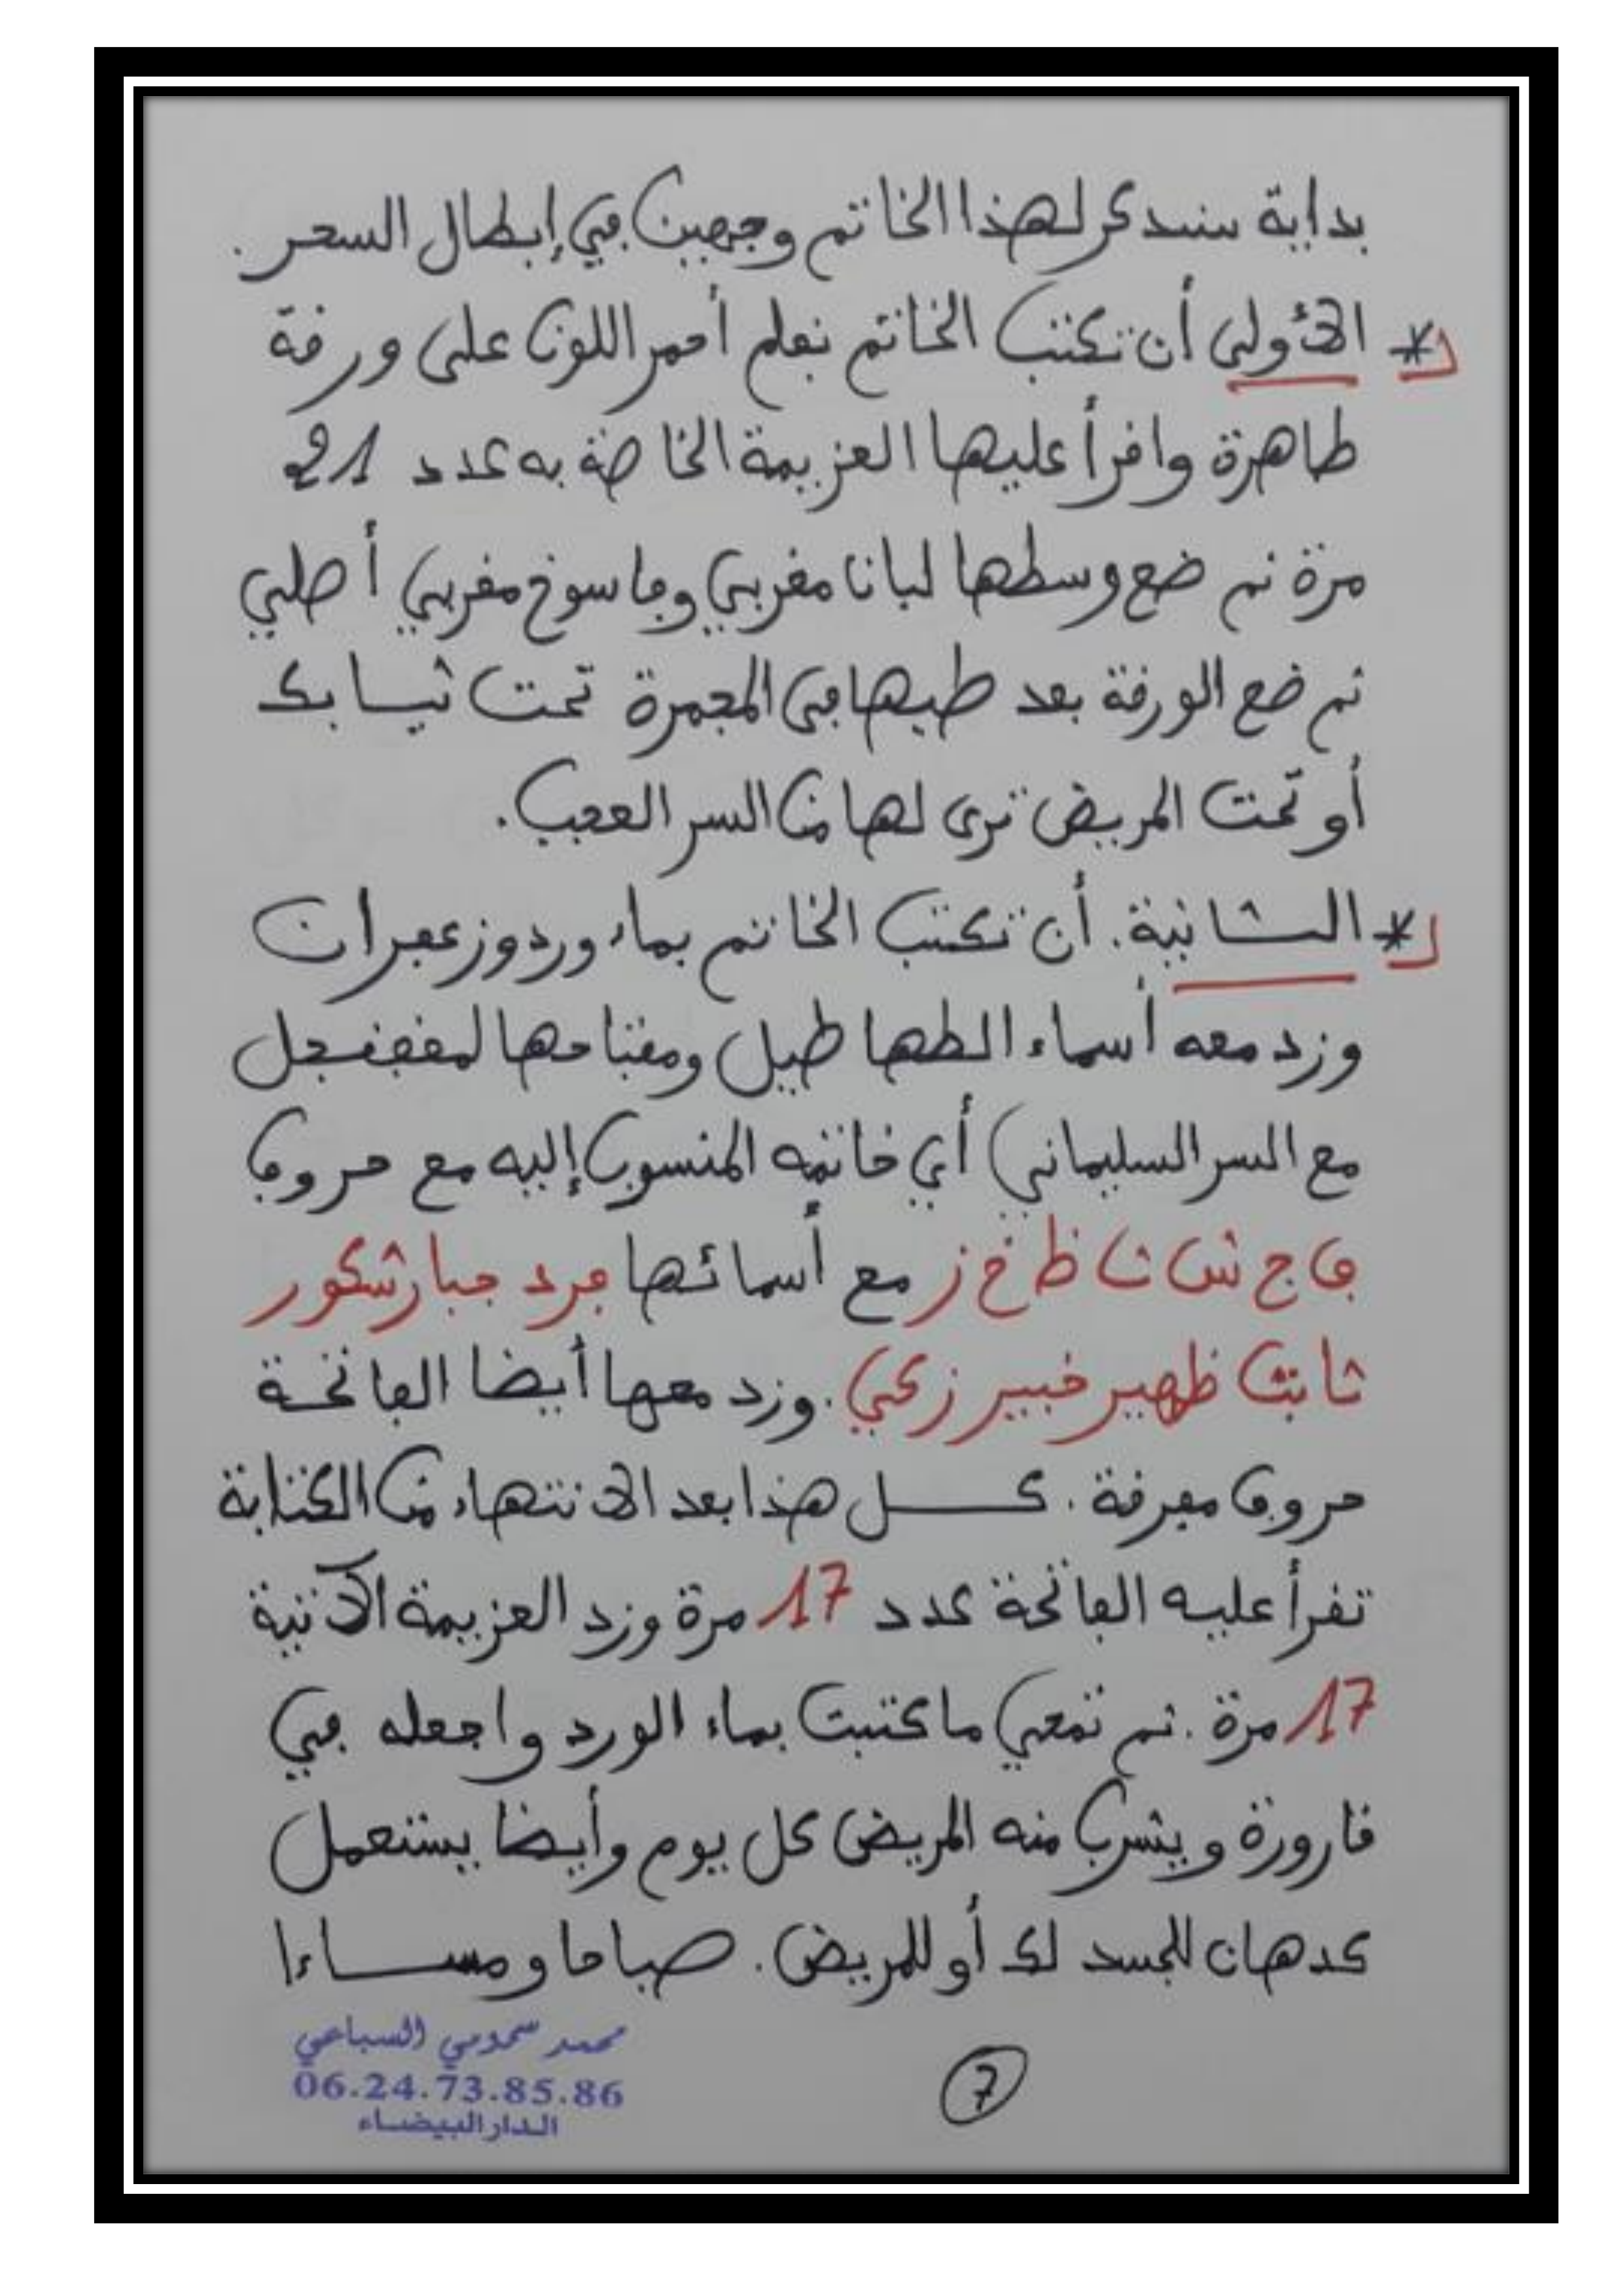 بداية سنبدئ لهذا الخاتم وجهين في إبطال السحر.
* الأولى أن تكتب الخاتم بقلم أحمر اللون على ورقة
طاهرة واقرأ عليها العزيمة الخاصة به عدد 21
مرة ثم ضع وسطها لبانا مغربي وفاسوخ مغربي أصلي
ثم ضع الورقة بعد طيها في المجمرة تحت ثيابك
أو تحت المريض ترى لها من السر العجب.
* الثانية. أن تكتب الخاتم بماء ورد وزعفران
وزد معه أسماء الطهاطيل ومفتاحها لمقفنجل
مع السر السليماني أي خاتمه المنسوب إليه مع حروف
ف ج ش ث ظ خ ز مع أسمائها فرد جبار شكور
ثابت ظهير خبير زكي. وزد معها أيضا الفاتحة
حروف مفرقة. كل هذا بعد الانتهاء من الكتابة
تقرأ عليه الفاتحة عدد 17 مرة وزد العزيمة الآتية
17 مرة. ثم تمحي ما كتبت بماء الورد واجعله في
قارورة ويشرب منه المريض كل يوم وأيضا يستعمل
كدهان للجسد لك أو للمريض. صباحا ومساءا
محمد سحومي السباعي
06.24.73.85.86
الدار البيضاء
7